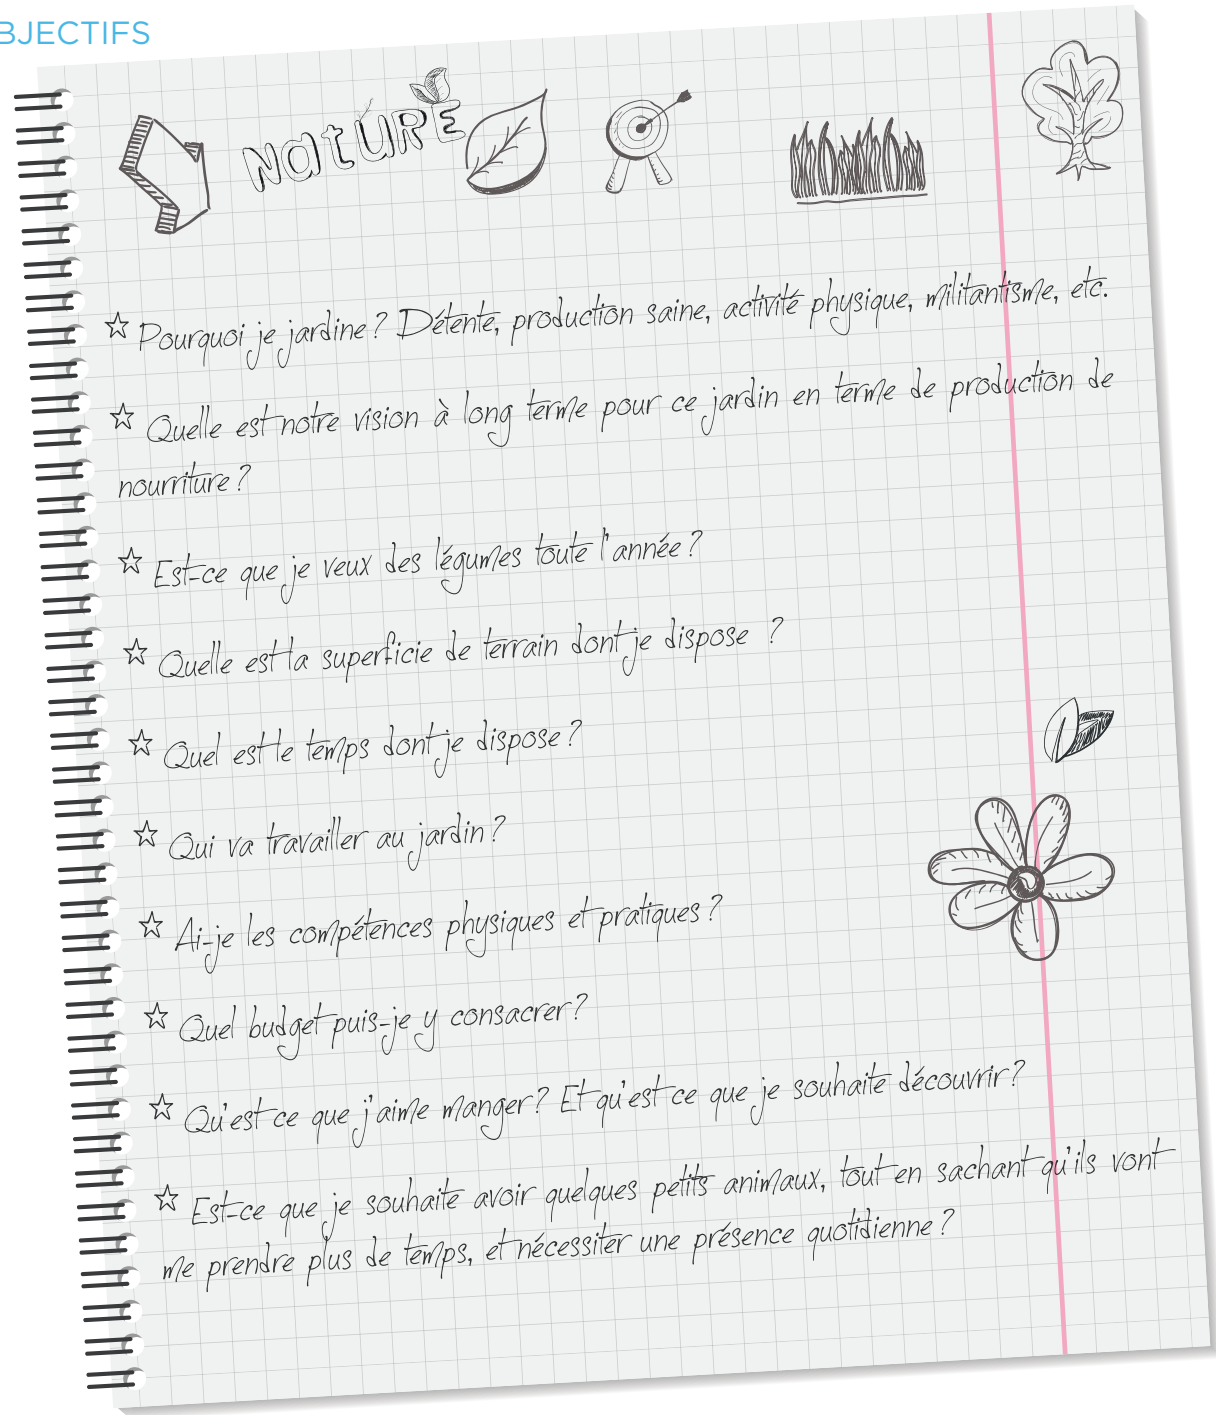 BJECTIFS
NatURE
Pourquoi je jardine? Détente, production saine, activité physique, militantisme, etc.
Quelle est notre vision à long terme pour ce jardin en terme de production de
nourriture?
Est-ce que je veux des légumes toute l'année?
Quelle est la superficie de terrain dont je dispose ?
Quel est le temps dont je dispose?
Qui va travailler au jardin?
Ai-je les compétences physiques et pratiques?
Quel budget puis-je y consacrer?
Qu'est ce que j'aime manger? Et qu'est ce que je souhaite découvrir?
Est-ce que je souhaite avoir quelques petits animaux, tout en sachant qu'ils vont
me prendre plus de temps, et nécessiter une présence quotidienne?